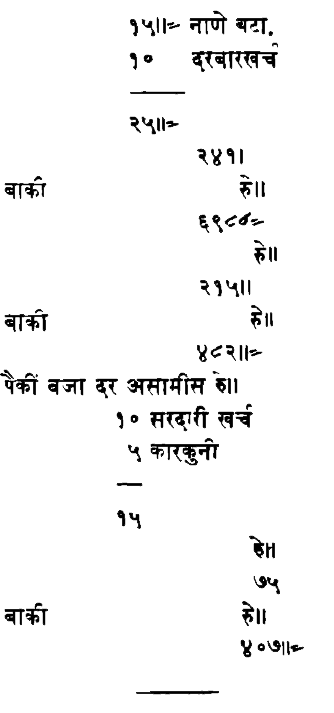 १५॥= नाणे बटा.
१० दरबारखर्च
२५॥=
२४१।
बाकी रु॥
६९८८=
रु॥
२१५॥
बाकी रु॥
४८२॥=
पैकीं बजा दर असामीस रु॥
१० सरदारी खर्च
५ कारकुनी
१५
रु॥
७५
बाकी रु॥
४०७॥=